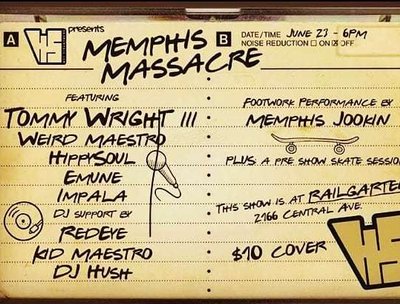 A
HS
presents
MEMPHIS
MASSACRE
B
DATE/TIME JUNE 23 - 6PM
NOISE REDUCTION ☐ ON ☒ OFF
FEATURING
TOMMY WRIGHT III
WEIRD MAESTRO
HIPPYSOUL
EMUNE
IMPALA
DJ SUPPORT BY
REDEYE
KID MAESTRO
DJ HUSH
FOOTWORK PERFORMANCE BY
MEMPHIS JOOKIN
PLUS A PRE SHOW SKATE SESSION
THIS SHOW IS AT RAILGARTEN
2166 CENTRAL AVE.
$10 COVER